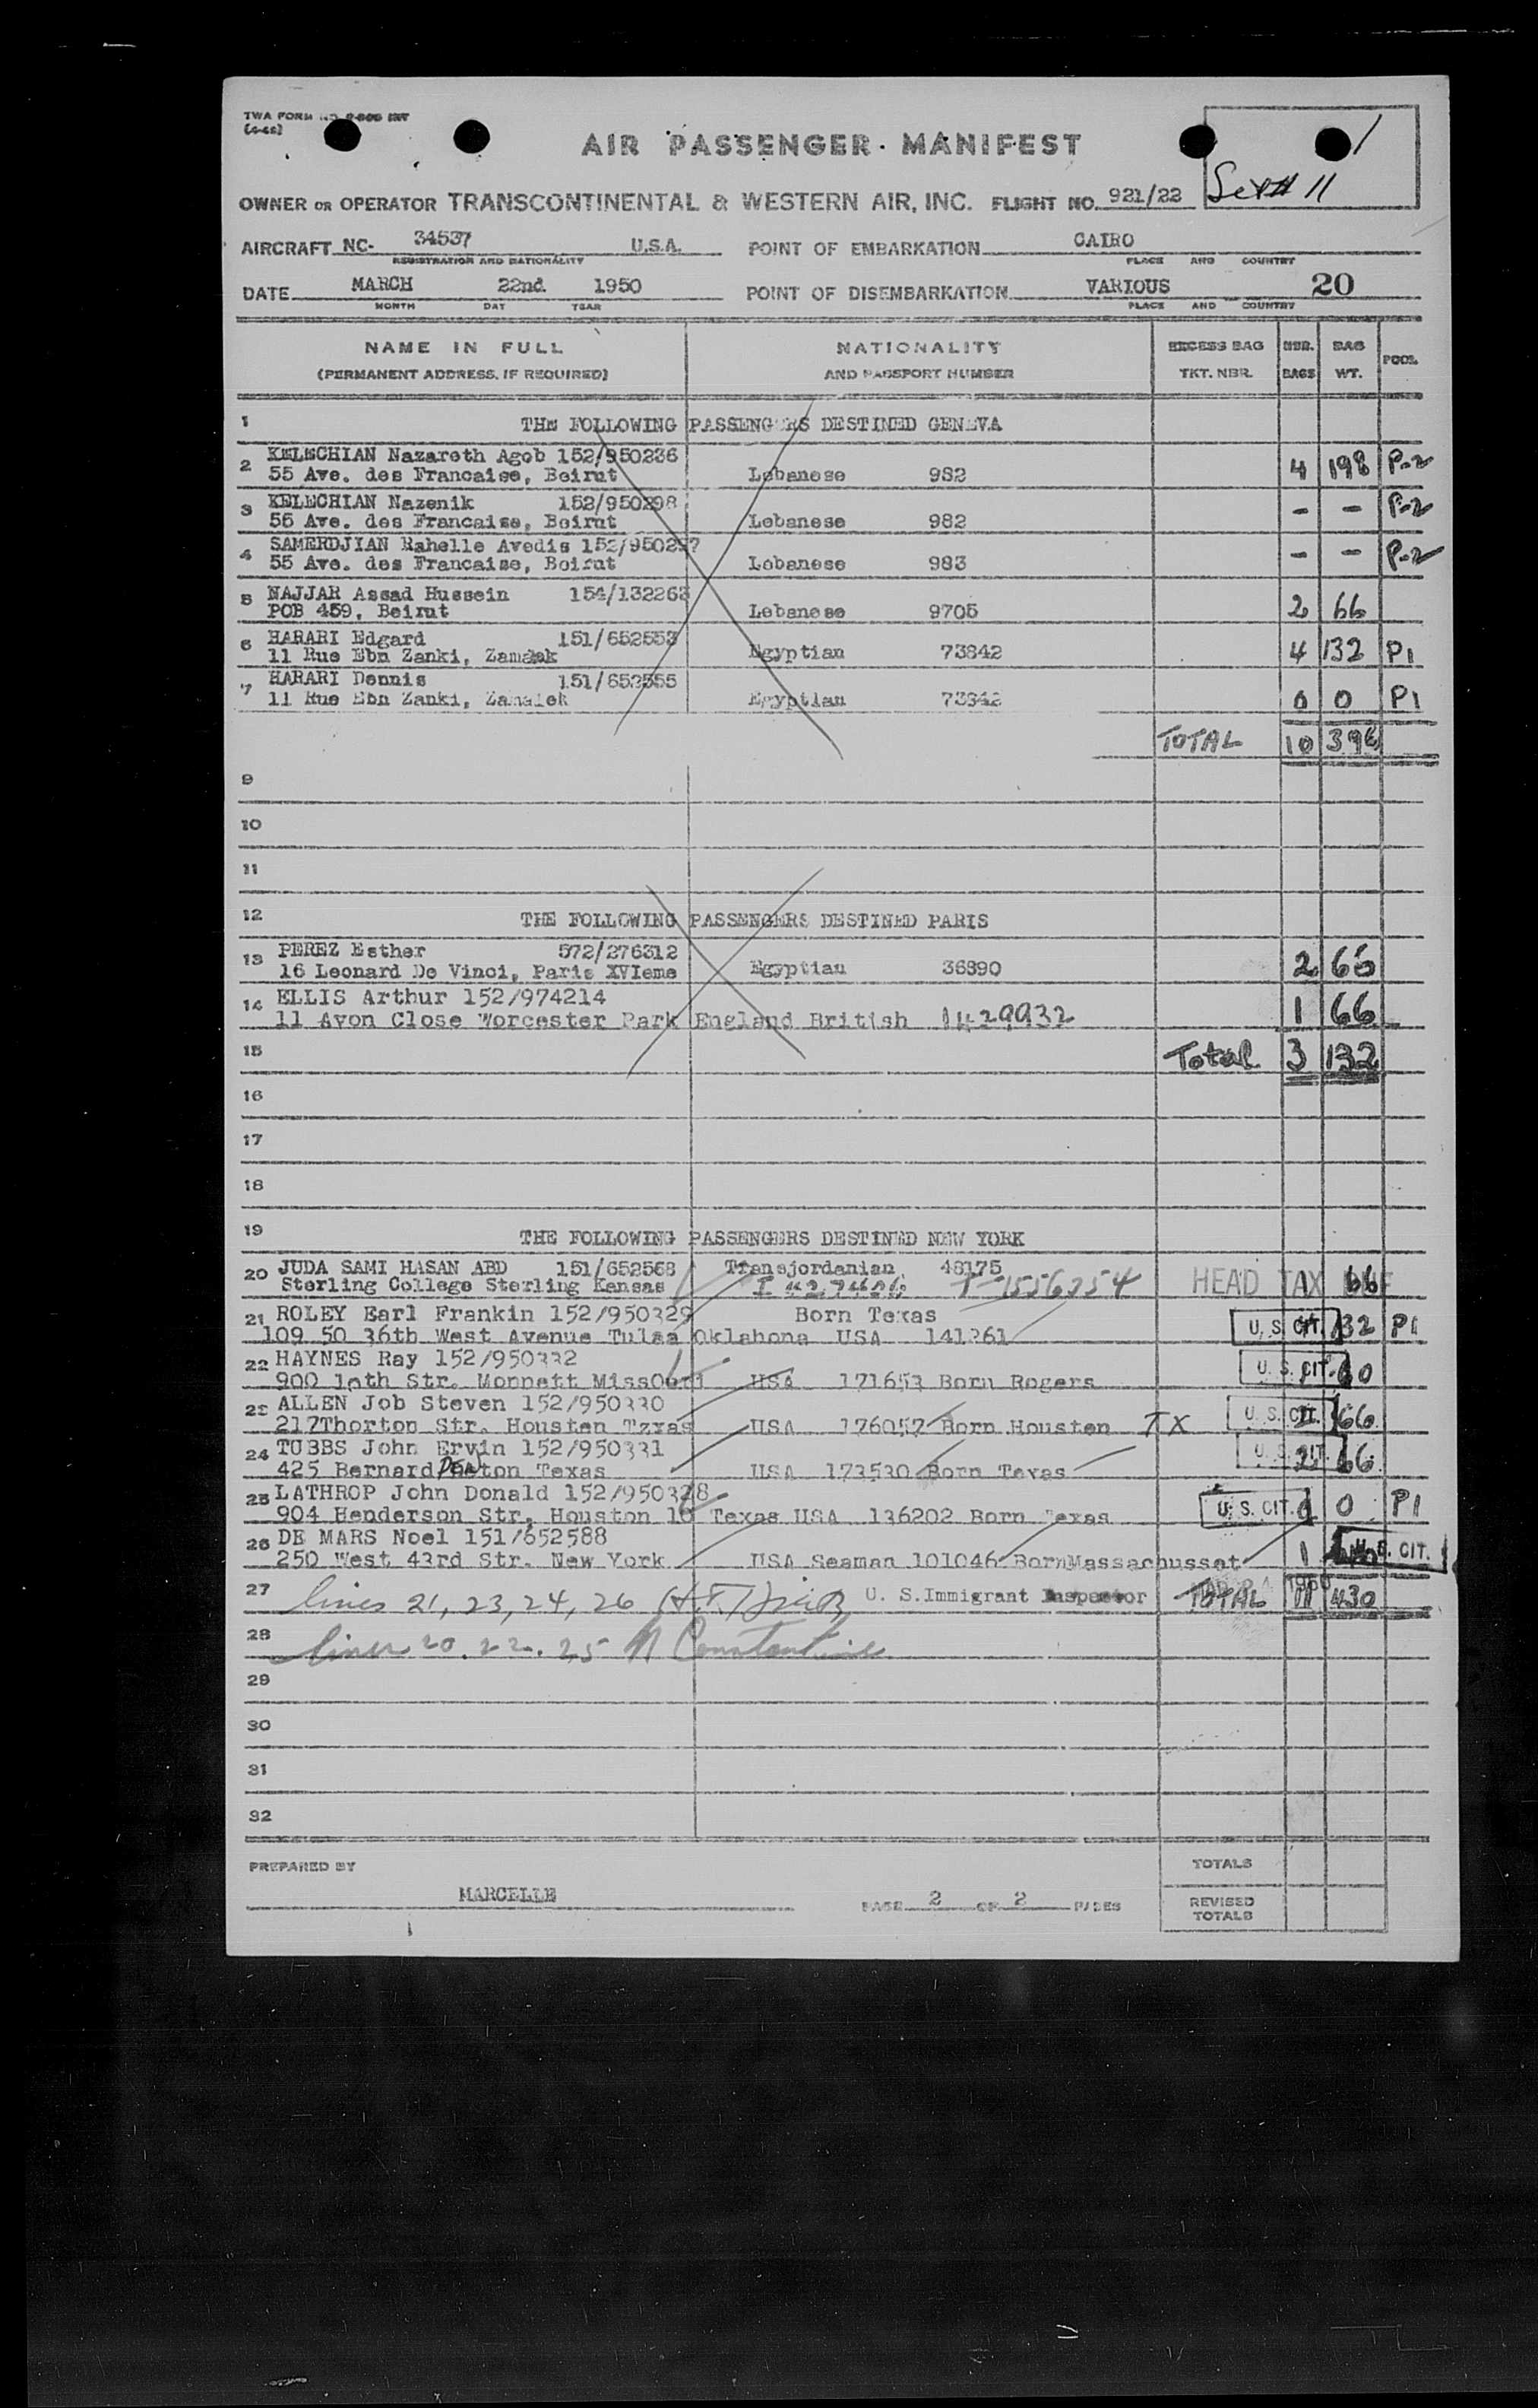 TWA FORM
AIR PASSENGER MANIFEST
Set# 11
OWNER OR OPERATOR TRANSCONTINENTAL & WESTERN AIR, INC. FLIGHT NO. 921/22
AIRCRAFT NC- 34537 U.S.A. POINT OF EMBARKATION CAIRO
REGISTRATION AND NATIONALITY PLACE AND COUNTRY
DATE MARCH 22nd 1950 POINT OF DISEMBARKATION VARIOUS 20
MONTH DAY YEAR PLACE AND COUNTRY
NAME IN FULL NATIONALITY EXCESS BAG NBR. BAG POOL
(PERMANENT ADDRESS, IF REQUIRED) AND PASSPORT NUMBER TKT. NBR. BAGS WT.
1 THE FOLLOWING PASSENGERS DESTINED GENEVA
2 KELECHIAN Nazareth Agob 152/950236
55 Ave. des Francaise, Beirut Lebanese 982 4 198 P-2
3 KELECHIAN Nazenik 152/950298
55 Ave. des Francaise, Beirut Lebanese 982 - - P-2
4 SAMERDJIAN Rahelle Avedis
55 Ave. des Francaise, Beirut Lebanese 983 - - P-2
5 NAJJAR Assad Hussein
POB 459, Beirut Lebanese 9705 2 66
6 HARARI Edgard 151/652553
11 Rue Ebn Zanki, Zamalek Egyptian 73842 4 132 P1
7 HARARI Dennis 151/652555
11 Rue Ebn Zanki, Zamalek Egyptian 73842 0 0 P1
TOTAL 10 396
9
10
11
12 THE FOLLOWING PASSENGERS DESTINED PARIS
13 PEREZ Esther 572/276312
16 Leonard De Vinci, Paris XVIeme Egyptian 36890 2 66
14 ELLIS Arthur 152/974214
11 Avon Close Worcester Park England British 1429932 1 66
15 Total 3 132
16
17
18
19 THE FOLLOWING PASSENGERS DESTINED NEW YORK
20 JUDA SAMI HASAN ABD 151/652568 Transjordanian 48175
Sterling College Sterling Kansas T-1556354 HEAD TAX 66
21 ROLEY Earl Frankin 152/950329 Born Texas
109 50 36th West Avenue Tulsa Oklahona USA 141261 U. S. CIT. 132 P1
22 HAYNES Ray 152/950332
900 10th Str. Monnett Missouri USA 171653 Born Rogers U. S. CIT.
23 ALLEN Job Steven 152/950330
217Thorton Str. Housten Tzxas USA 176057 Born Housten TX U. S. CIT. 66
24 TUBBS John Ervin 152/950331
425 Bernard Denton Texas USA 173530 Born Texas U. S. CIT. 66
25 LATHROP John Donald 152/950328
904 Henderson Str, Houston 10 Texas USA 136202 Born Texas U. S. CIT. 0 P1
26 DE MARS Noel 151/652588
250 West 43rd Str. New York USA Seaman 101046 BornMassachusset 1 U. S. CIT.
27 lines 21, 23, 24, 26 U. S. Immigrant Inspector TOTAL 11 430
28 lines 20. 22. 25 Constantine
29
30
31
32
PREPARED BY TOTALS
MARCELLE PAGE 2 OF 2 PAGES REVISED
TOTALS